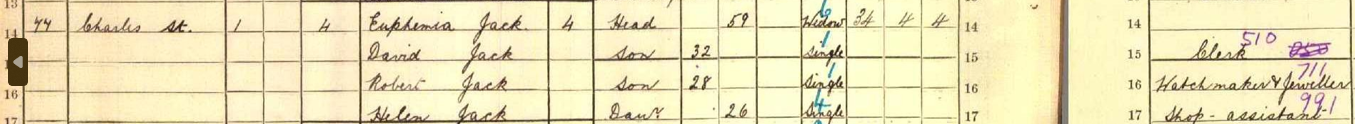 13
14 44 Charles St. 1 4 Euphemia Jack. 4 Head 59 Widow 34 4 4 14 14
David Jack Son 32 Single 15 15 Clerk 510
16 Robert Jack Son 28 Single 16 16 Watchmaker & Jeweller 711
17 Helen Jack Daur 26 Single 17 17 Shop-assistant 991